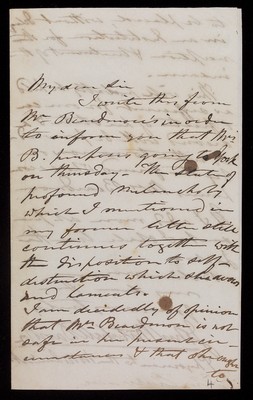 My dear Sir
I write this from
Mr Beardmore's in order
to inform you that Mrs
B. purposes going to York
on thursday - The state of
profound melancholy
which I mentioned in
my former letter still
continues togeth with
the disposition to self
destruction which she avows
and laments.
I am decidedly of opinion
that Mrs Beardmore is not
safe in her present cir-
cumstances & that she ought
to
4